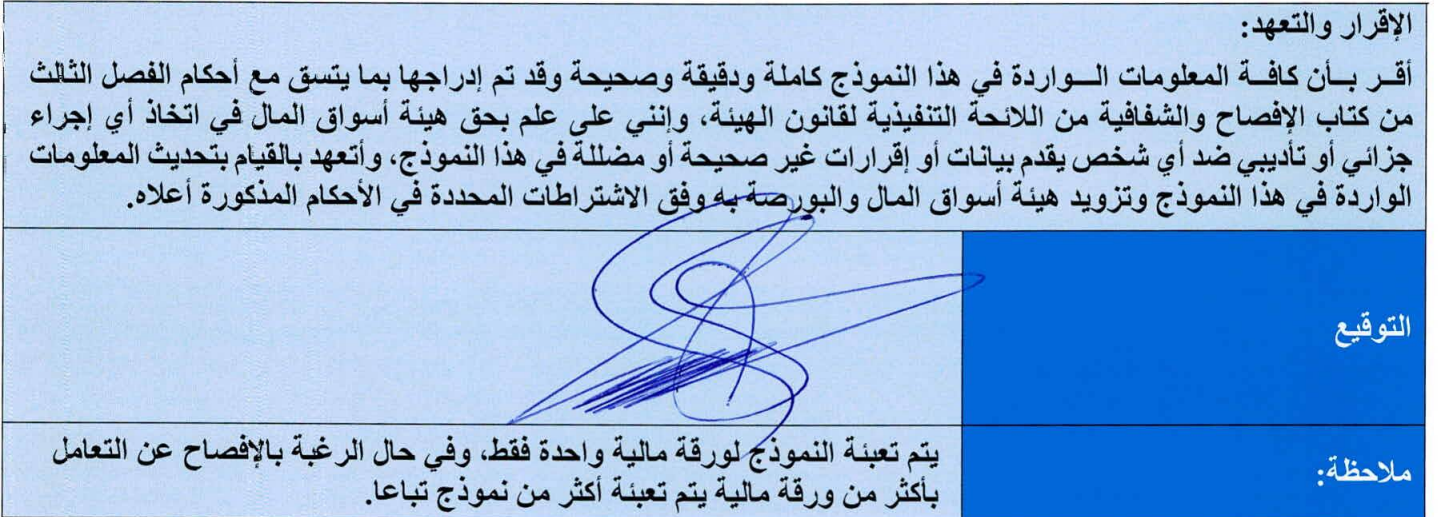 الإقرار والتعهد:
أقــر بــأن كافــة المعلومات الــواردة في هذا النموذج كاملة ودقيقة وصحيحة وقد تم إدراجها بما يتسق مع أحكام الفصل الثالث
من كتاب الإفصاح والشفافية من اللائحة التنفيذية لقانون الهيئة، وإنني على علم بحق هيئة أسواق المال في اتخاذ أي إجراء
جزائي أو تأديبي ضد أي شخص يقدم بيانات أو إقرارات غير صحيحة أو مضللة في هذا النموذج، وأتعهد بالقيام بتحديث المعلومات
الواردة في هذا النموذج وتزويد هيئة أسواق المال والبورصة به وفق الاشتراطات المحددة في الأحكام المذكورة أعلاه.
التوقيع
ملاحظة:
يتم تعبئة النموذج لورقة مالية واحدة فقط، وفي حال الرغبة بالإفصاح عن التعامل
بأكثر من ورقة مالية يتم تعبئة أكثر من نموذج تباعا.